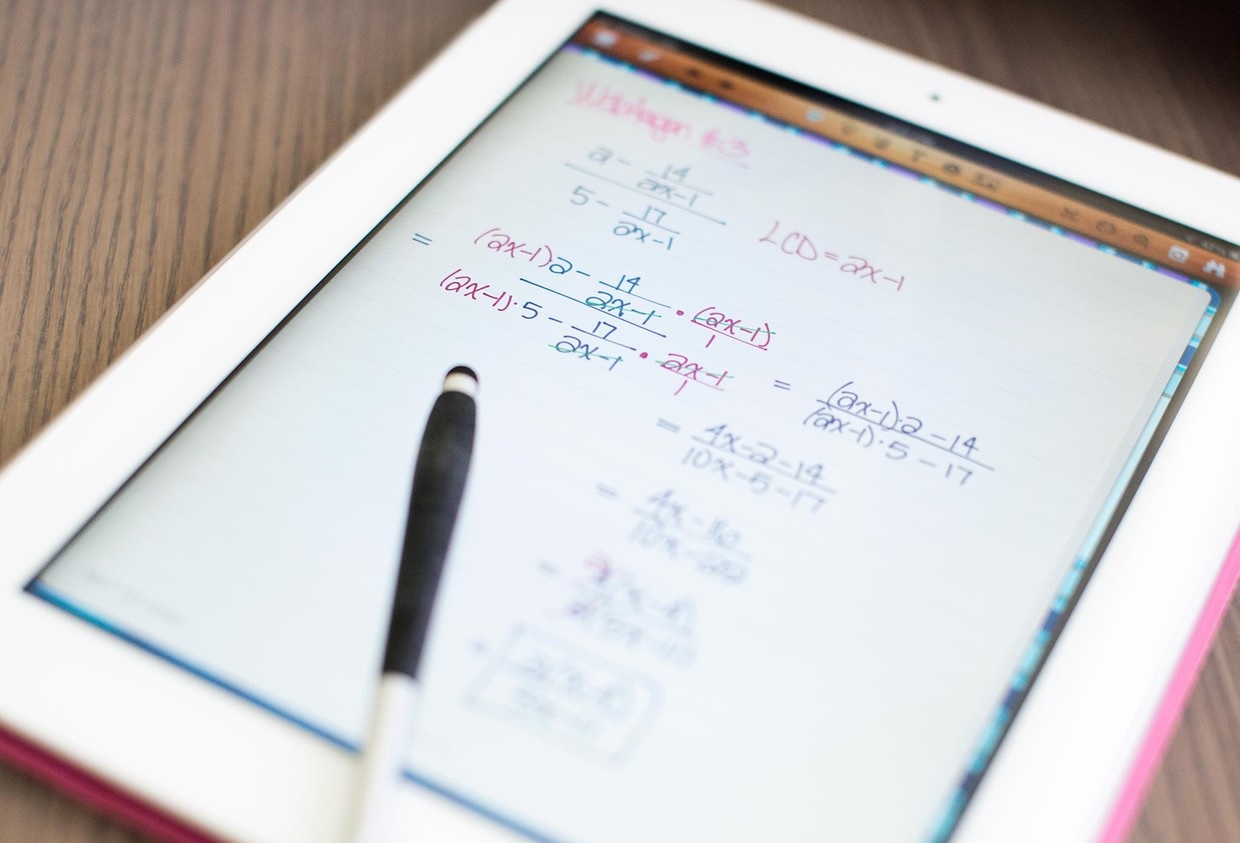 2 - 14/(2x-1)
5 - 17/(2x-1)
LCD = 2x-1
= (2x-1)2 - 14/(2x-1) · (2x-1)/1
(2x-1)·5 - 17/(2x-1) · 2x-1/1
= (2x-1)·2-14
(2x-1)·5-17
= 4x-2-14
10x-5-17
= 4x-16
10x-22
=
=